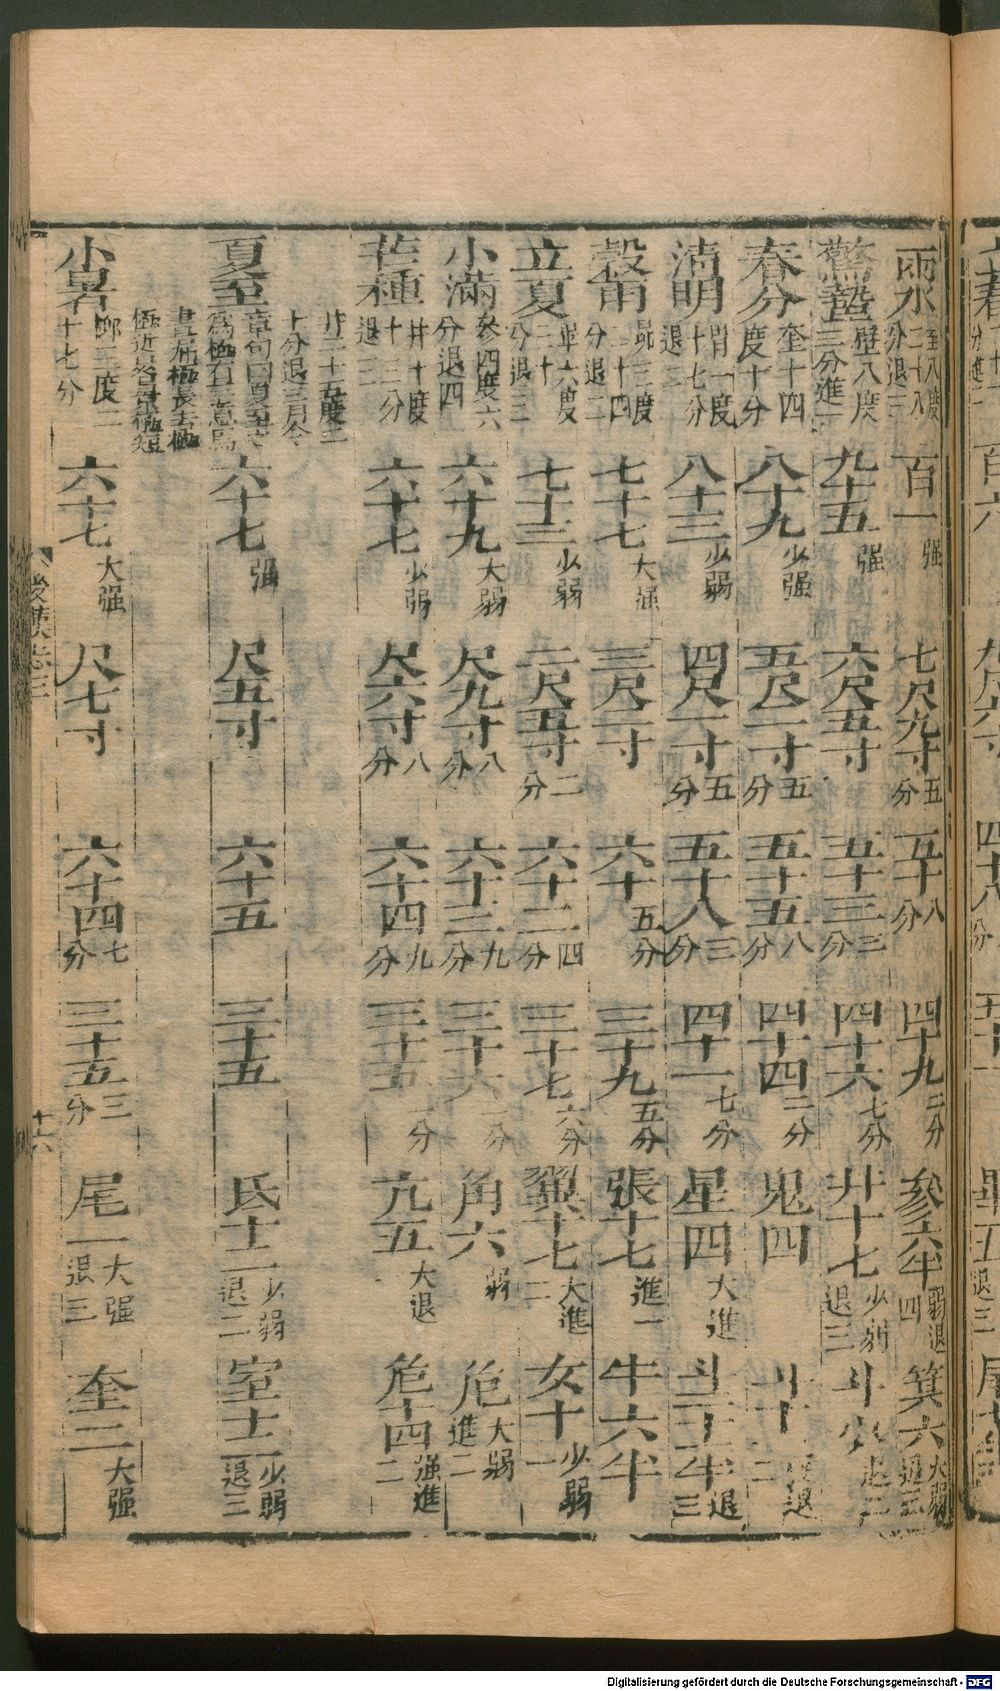 雨水 室八度二十八分退三 百一 强 七尺九寸 五分 五十 八分 四十九 二分 參六半 弱退四 箕六 大弱退三
驚蟄 壁八度三分進一 九十五 强 六尺五寸 五十三 三分 四十六 七分 井十七 少弱退三 斗 少 退二
春分 奎十四度十分 八十九 少强 五尺二寸 五分 五十五 八分 四十四 二分 鬼四 斗十 退二
清明 胃一度十七分退 八十三 少弱 四尺一寸 五分 五十八 三分 四十一 七分 星四 大進 斗二十一半 退三
穀雨 昴二度二十四分退二 七十七 大强 三尺二寸 六十 五分 三十九 五分 張十七 進一 牛六半
立夏 畢六度三十分退三 七十三 少弱 二尺五寸 二分 六十二 四分 三十七 六分 翼十七 大進二 女十 少弱
小滿 參四度六分退四 六十九 大弱 尺九寸 八分 六十三 九分 三十六 一分 角六 弱 危 大弱進二
芒種 井十度十三分退三 六十七 少弱 尺六寸 八分 六十四 九分 三十五 一分 亢五 大退 危十四 强進二
井二十五度二十分退三月令
夏至 章句曰夏至 六十七 强 尺五寸 六十五 三十五 氐十二 少弱退二 室十二 少弱退三
小暑 柳三度二十七分 六十七 大强 尺七寸 六十四 七分 三十五 三分 尾一 大强退三 奎二 大强
後漢志三
十六
Digitalisierung gefördert durch die Deutsche Forschungsgemeinschaft - DFG